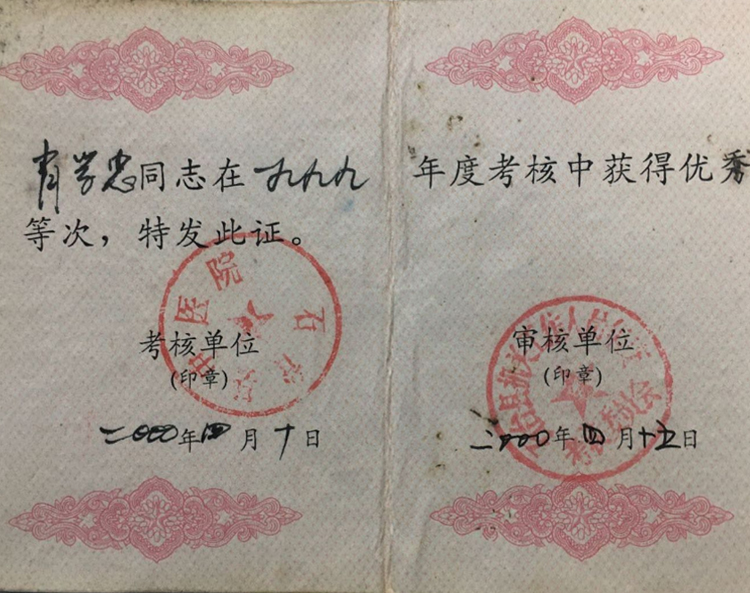 肖学忠同志在一九九九年度考核中获得优秀
等次，特发此证。
中医院
考核单位
(印章)
二000年四月十日
审核单位
(印章)
二000年四月十五日